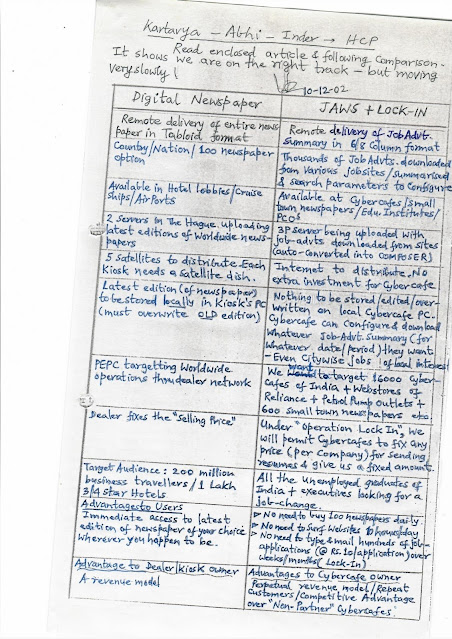 Kartavya – Abhi – Inder → HCP
Read enclosed article & following comparison.
It shows we are on the right track – but moving
very slowly!
10-12-02
Digital Newspaper
Remote delivery of entire news
paper in Tabloid format
Country/Nation/100 newspaper
option
Available in Hotel lobbies/Cruise
ships/AirPorts
2 Servers in The Hague. uploading
latest editions of Worldwide news-
papers
5 Satellites to distribute. Each
Kiosk needs a satellite dish.
Latest edition (of newspaper)
to be stored locally in Kiosk's PC
(must overwrite OLD edition)
PEPC targetting Worldwide
operations thru dealer network
Dealer fixes the "Selling Price"
Target Audience: 200 million
business travellers/1 Lakh
3/4 Star Hotels
Advantages to Users
Immediate access to latest
edition of newspaper of your choice
wherever you happen to be.
Advantage to Dealer/Kiosk owner
A revenue model
JAWS + LOCK-IN
Remote delivery of Job Advt.
Summary in 6/8 Column format
Thousands of Job Advts. downloaded
from various Jobsites/summarised
& search parameters to Configure
Available at Cybercafes/small
town newspapers/Edu. Institutes/
PCOs
3P server being uploaded with
job-advts downloaded from sites
(auto-converted into COMPOSER)
Internet to distribute. NO
extra investment for Cybercafe
Nothing to be stored/edited/over-
written on local Cybercafe PC.
Cybercafe can Configure & download
whatever Job-Advt. Summary (for
whatever date/period) they want
– Even Citywise Jobs of local interest
We want to target 16000 Cyber-
cafes of India + Webstores of
Reliance + Petrol Pump Outlets +
600 small town newspapers etc.
Under "operation Lock In", we
will permit Cybercafes to fix any
price (per Company) for sending
resumes & give us a fixed amount.
All the unemployed graduates of
India + executives looking for a
job-change.
▷ No need to buy 100 newspapers daily
▷ No need to Surf Websites 10 hours/day
▷ No need to type & mail hundreds of job-
applications (@ Rs. 10/application) over
weeks/months (Lock-In)
Advantages to Cybercafe owner
Perpetual revenue model/Repeat
Customers/Competitive Advantage
over "Non-Partner" Cybercafes.